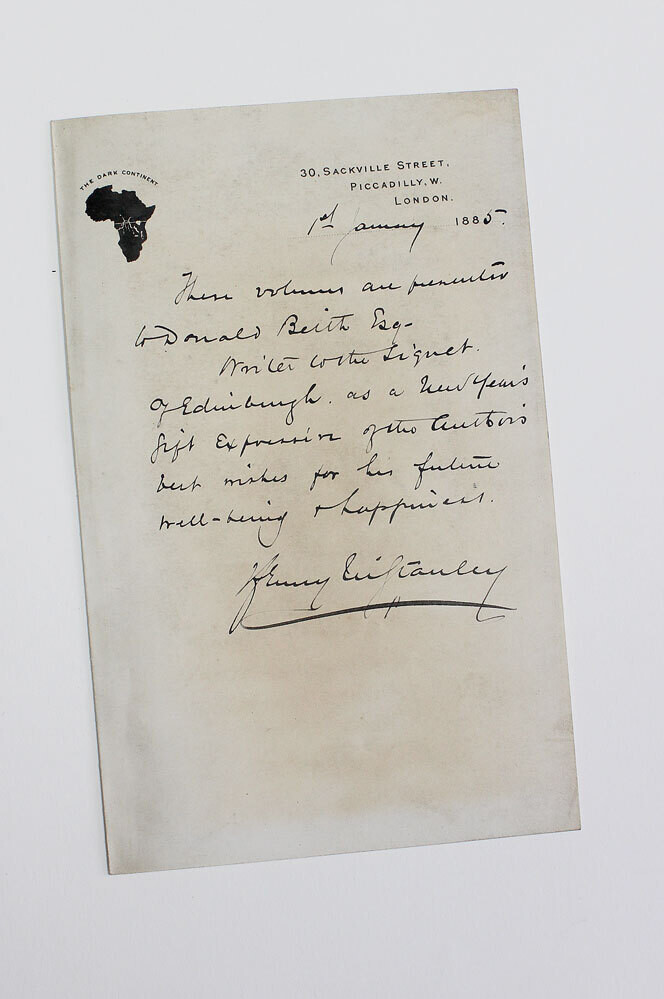 THE DARK CONTINENT
30, SACKVILLE STREET,
PICCADILLY, W.
LONDON.
1st January 1885.
These volumes are presented
to Donald Beith Esq-
Writer to the Signet.
of Edinburgh. as a New Year's
gift expressive of the Author's
best wishes for his future
well-being & happiness.
Henry M Stanley